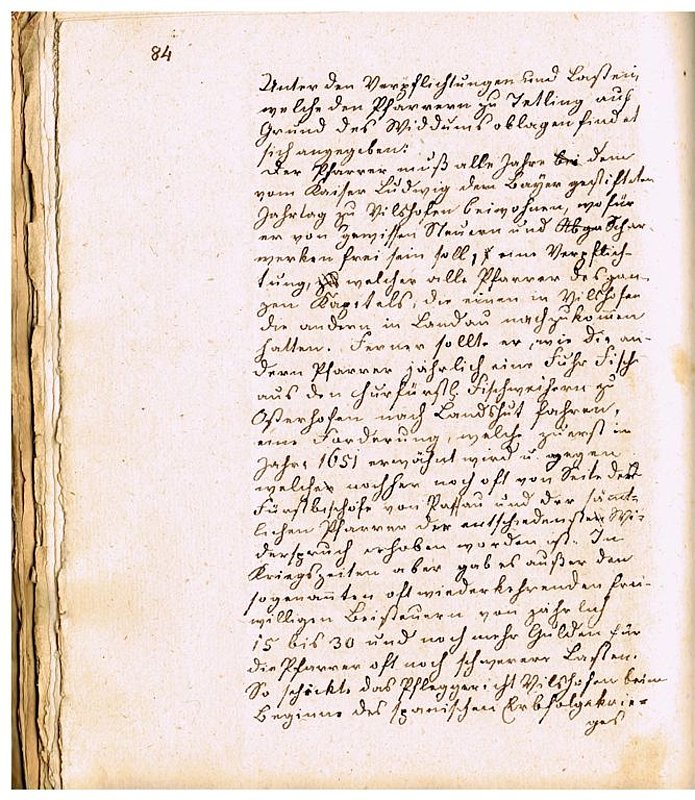 84
Unter den Verpflichtungen und Lasten,
welche den Pfarrern zu Tetling auf
Grund des Widdums oblagen findet
sich angegeben:
Der Pfarrer muß alle Jahre bei dem
vom Kaiser Ludwig dem Bayer gestifteten
Jahrtag zu Vilshofen beiwohnen, wofür
er von gewissen Steuern und Schar-
werken frei sein soll, eine Verpflich-
tung, welcher alle Pfarrer des gan-
zen Kapitels, die einen in Vilshofen
die andern in Landau nachzukommen
hatten. Ferner sollte er, wie die an-
dern Pfarrer jährlich eine Fuhr Fische
aus den churfürstl. Fischweihern zu
Osterhofen nach Landshut fahren,
eine Forderung, welche zuerst im
Jahre 1651 erwähnt wird u. gegen
welche nachher noch oft von Seite der
Fürstbischöfe von Passau und der sämt-
lichen Pfarrer der entschiedenste Wi-
derspruch erhoben worden ist. In
Kriegszeiten aber gab es außer den
sogenannten oft wiederkehrenden frei-
willigen Beisteuern von jährlich
15 bis 30 und noch mehr Gulden für
die Pfarrer oft noch schwerere Lasten.
So schickte das Pfleggericht Vilshofen beim
Beginne des spanischen Erbfolgekrie-
ges